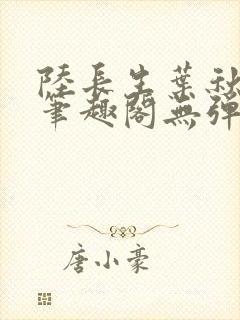 陸長生葉秋
筆趣閣無彈
唐小豪